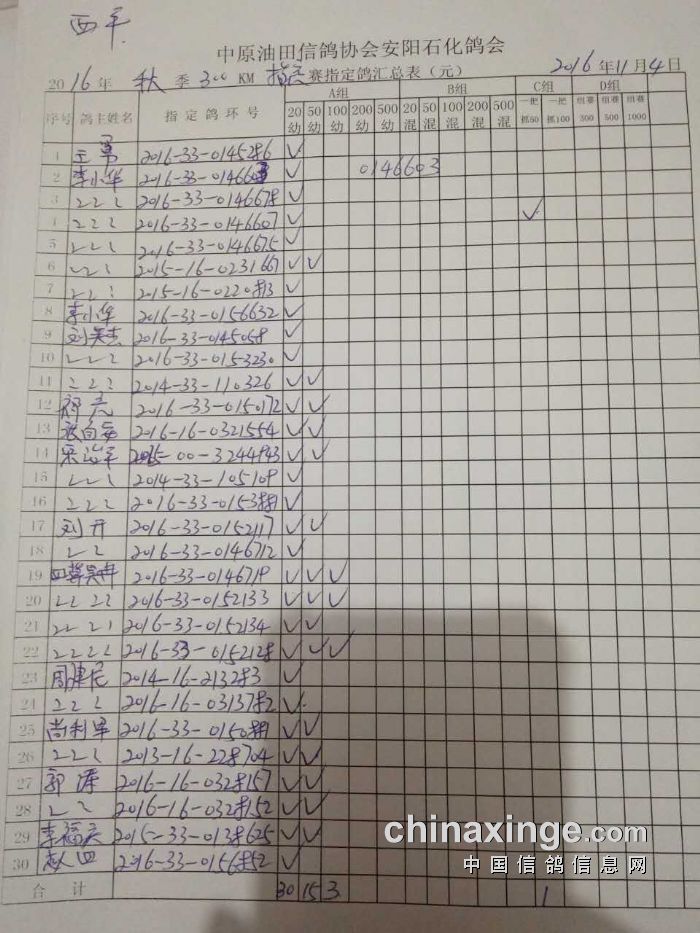 西平
中原油田信鸽协会安阳石化鸽会
2016年 秋 季 300 KM 指定赛指定鸽汇总表（元） 2016年11月4日
序号 鸽主姓名 指定鸽环号 A组 B组 C组 D组
20幼 50幼 100幼 200幼 500幼 20混 50混 100混 200混 500混 一把抓50 一把抓100 组赛300 组赛500 组赛1000
1 王勇 2016-33-0145286 ✓
2 李小华 2016-33-0146603 ✓ 0146603
3 2016-33-0146678 ✓
4 2016-33-0146607 ✓ ✓
5 2016-33-0146675 ✓
6 2015-16-0231667 ✓ ✓
7 2015-16-0220813 ✓
8 李小华 2016-33-0156632 ✓
9 刘 2016-33-0145058 ✓
10 2016-33-0153230 ✓
11 2014-33-110326 ✓ ✓
12 2016-33-0150172 ✓ ✓
13 2016-16-0321554 ✓ ✓
14 2015-00-3244943 ✓ ✓
15 2014-33-105109 ✓
16 2016-33-0153881 ✓
17 刘开 2016-33-0152117 ✓ ✓
18 2016-33-0146712 ✓
19 2016-33-0146719 ✓ ✓ ✓
20 2016-33-0152133 ✓ ✓ ✓
21 2016-33-0152134 ✓ ✓
22 2016-33-0152128 ✓ ✓ ✓
23 2014-16-213283 ✓
24 2016-16-0313782 ✓
25 尚利军 2016-33-0150881 ✓ ✓
26 2013-16-228704 ✓ ✓
27 郭涛 2016-16-0328157 ✓ ✓
28 2016-16-0328152 ✓ ✓
29 李福庆 2015-33-0138625 ✓ ✓
30 赵四 2016-33-0156852 ✓
合计 30 15 3 1
chinaxinge.com
中国信鸽信息网